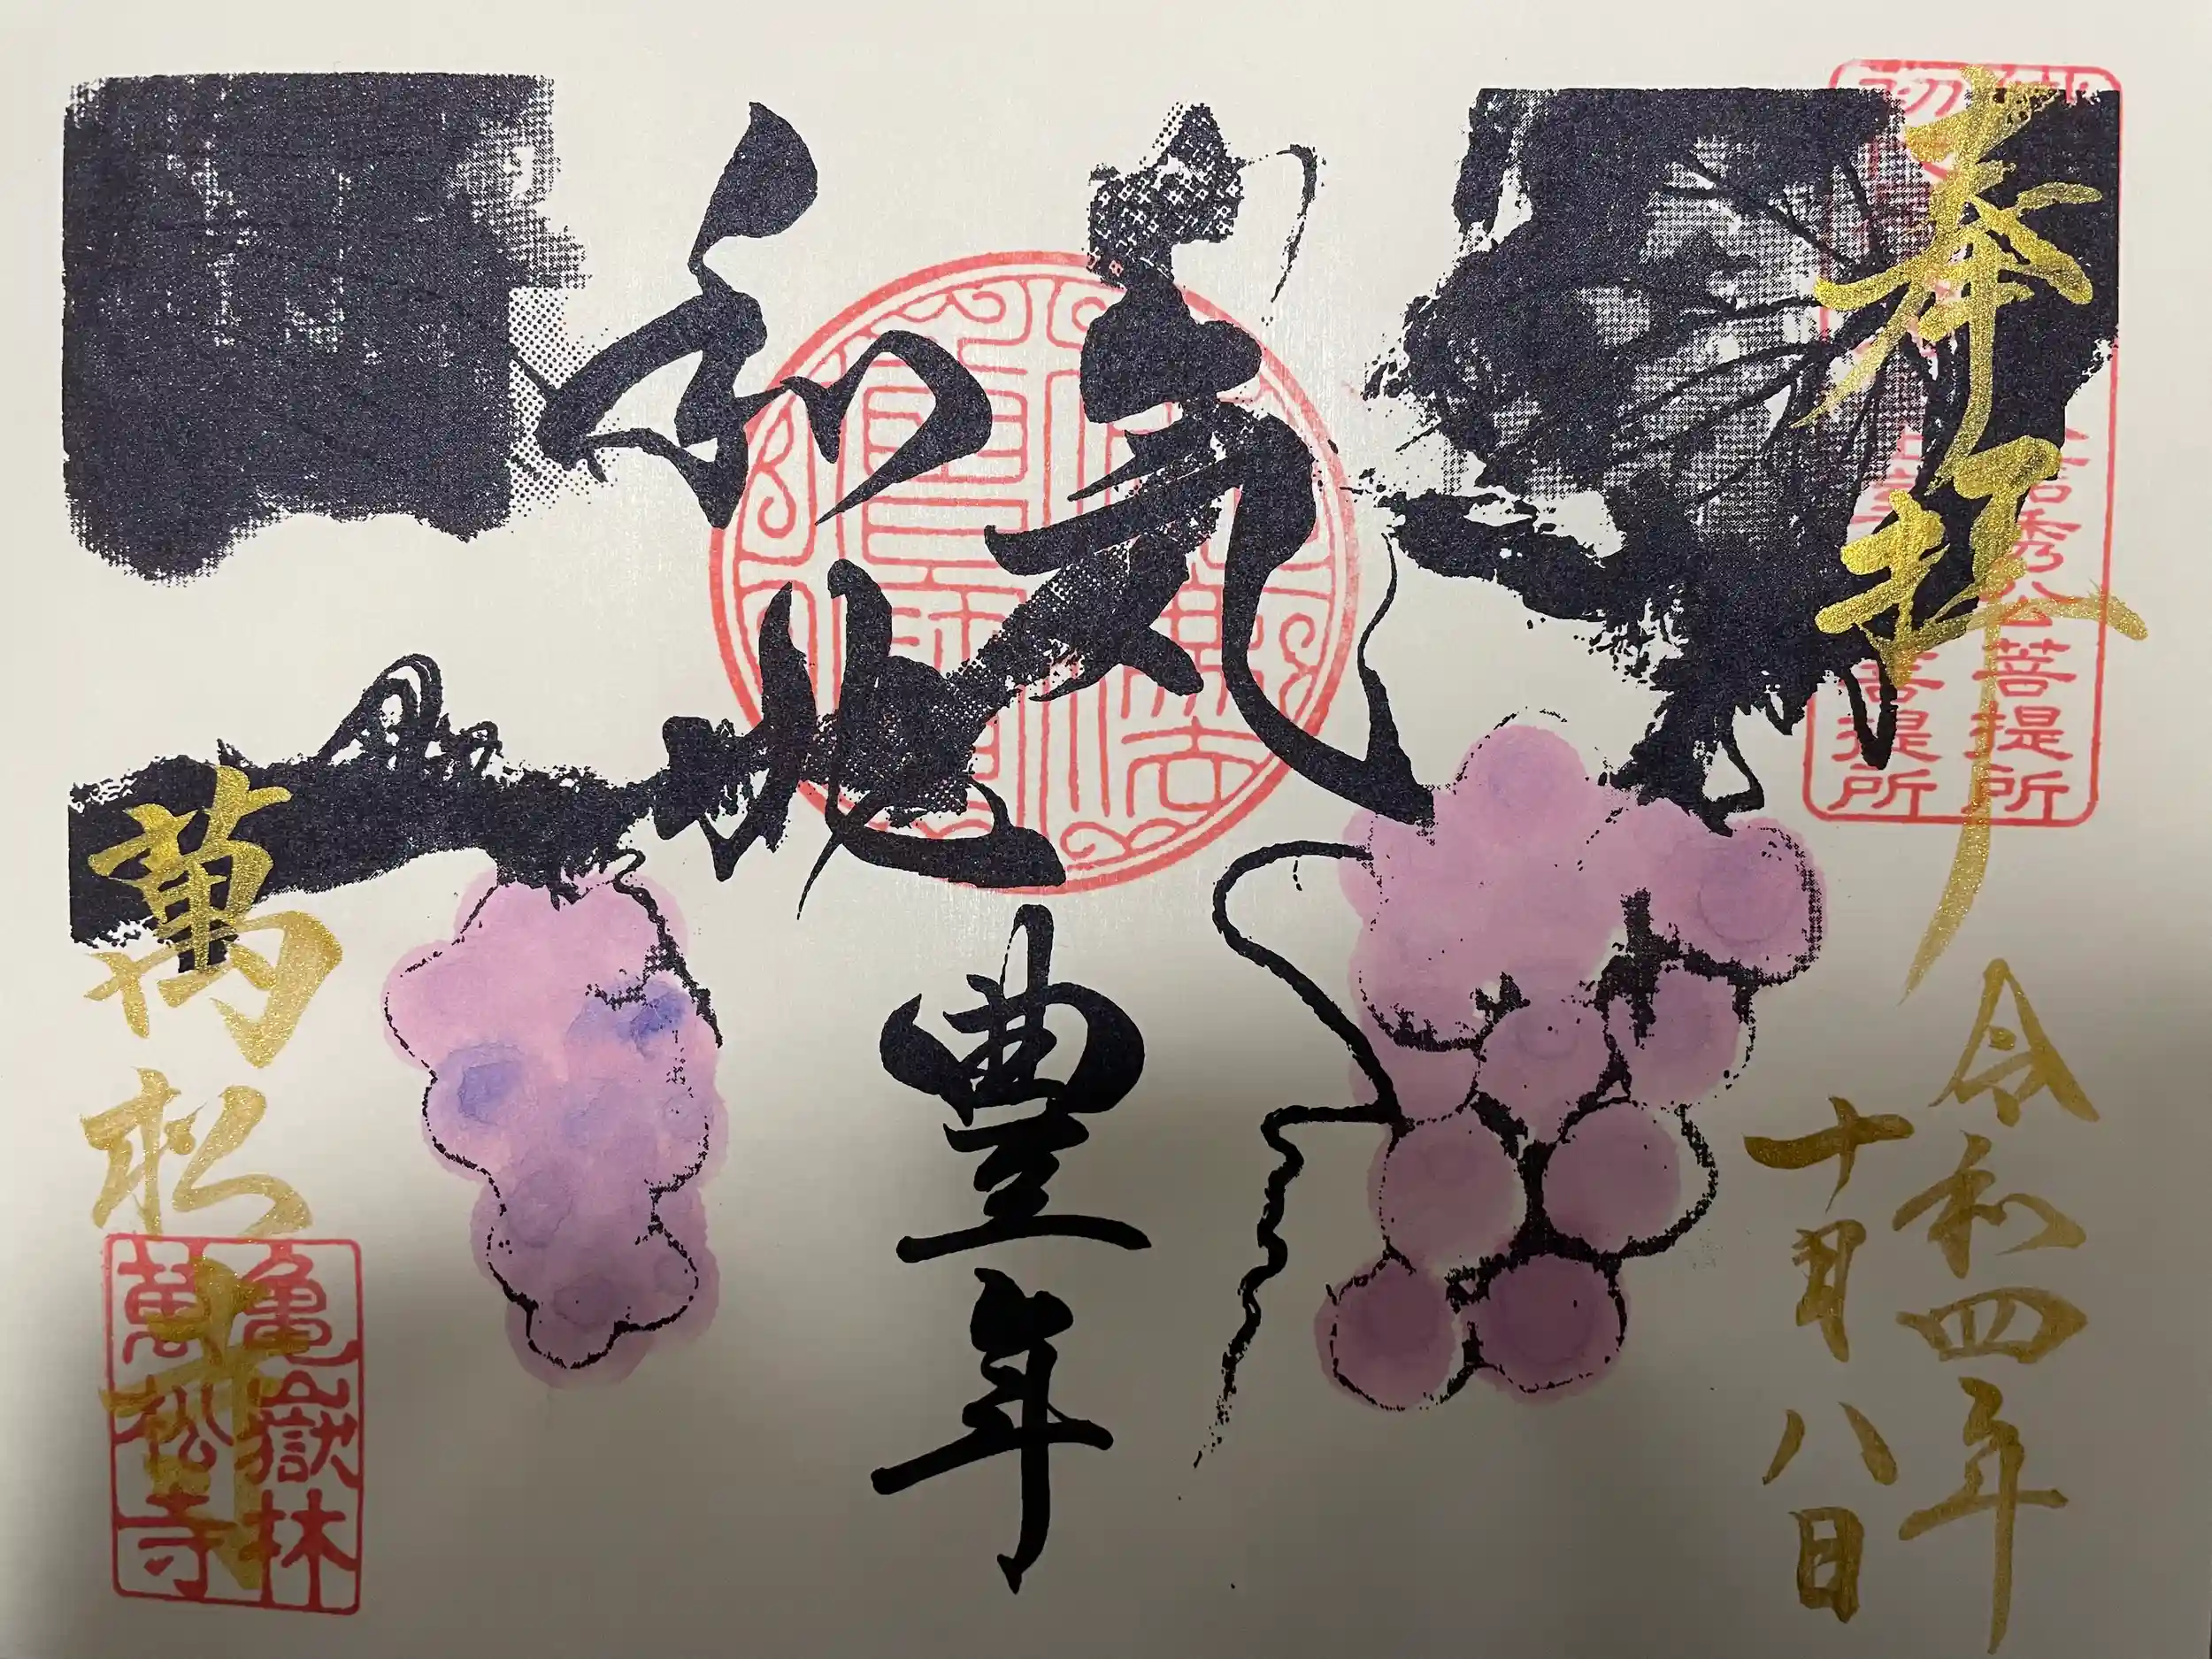 奉拝
信秀公菩提所
菩提所
令和四年
十月八日
和気兆豊年
萬松寺
龜嶽林
萬松寺